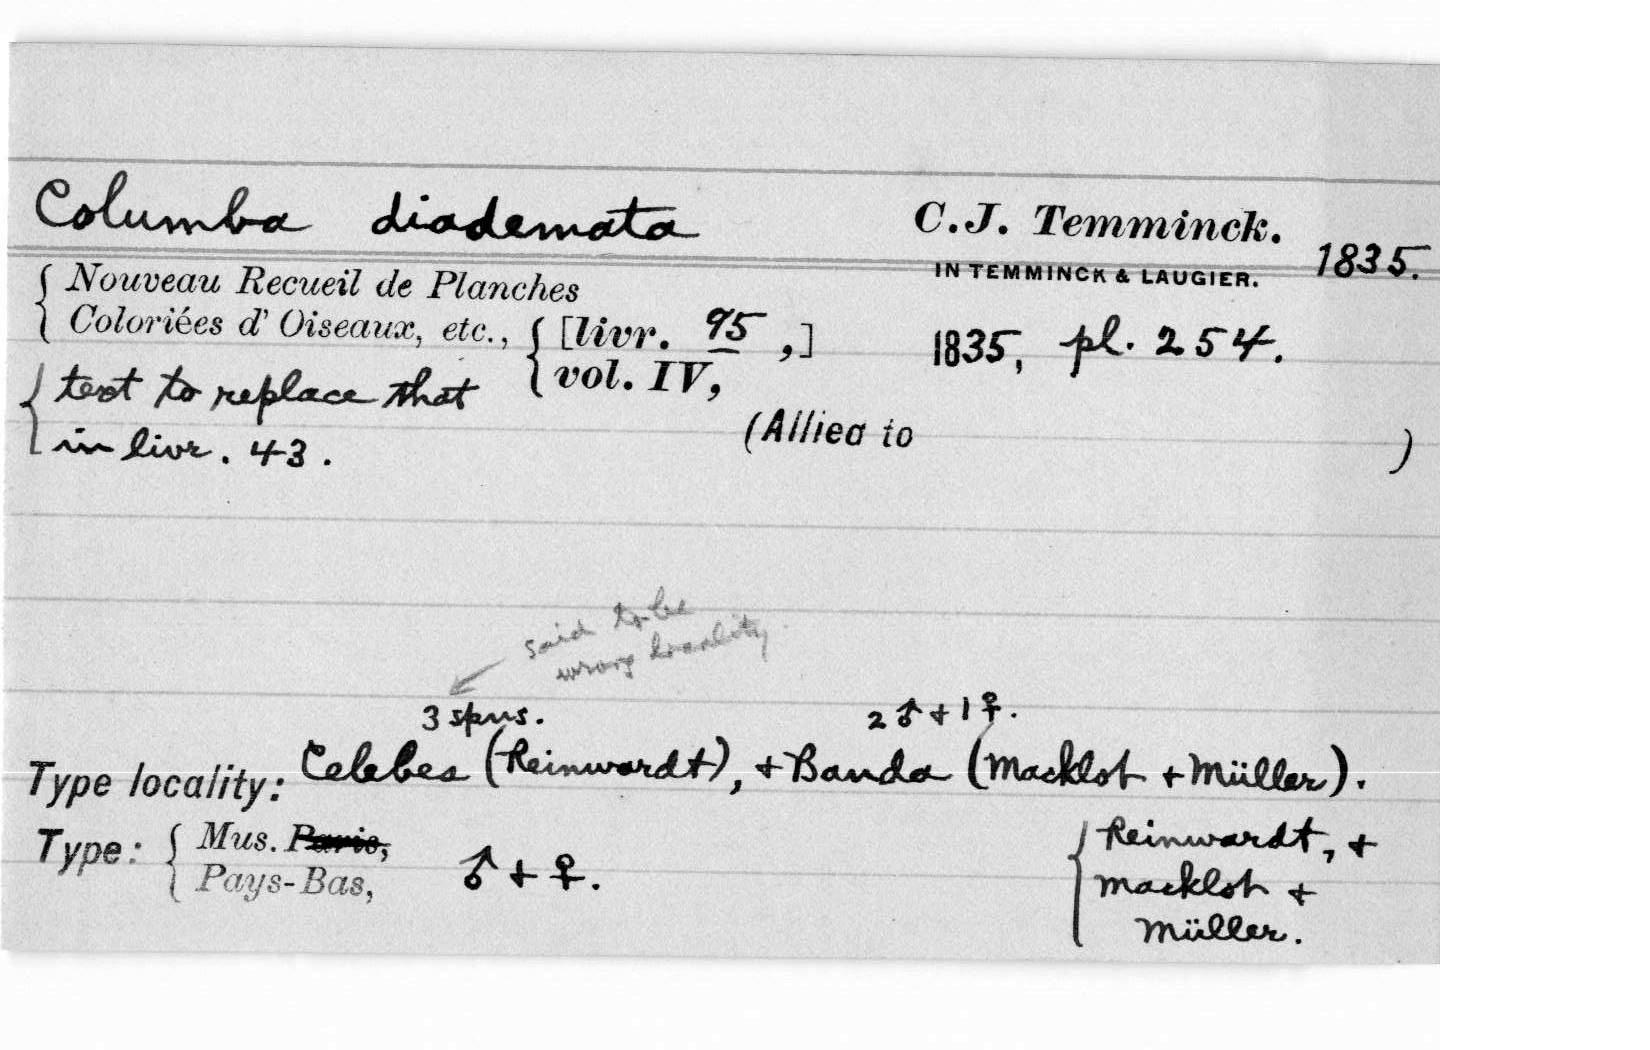 Columba diademata C.J. Temminck.
IN TEMMINCK & LAUGIER. 1835.
{ Nouveau Recueil de Planches
Coloriées d' Oiseaux, etc., { [livr. 95 ,] 1835, pl. 254.
vol. IV,
{ text to replace that
in livr. 43.
(Allied to )
said to be
wrong locality
3 spns. 2 ♂ + 1 ♀.
Type locality: Celebes (Reinwardt), + Banda (Macklot + Müller).
Type: { Mus. Paris,
Pays-Bas, ♂ + ♀.
{ Reinwardt, +
Macklot +
Müller.